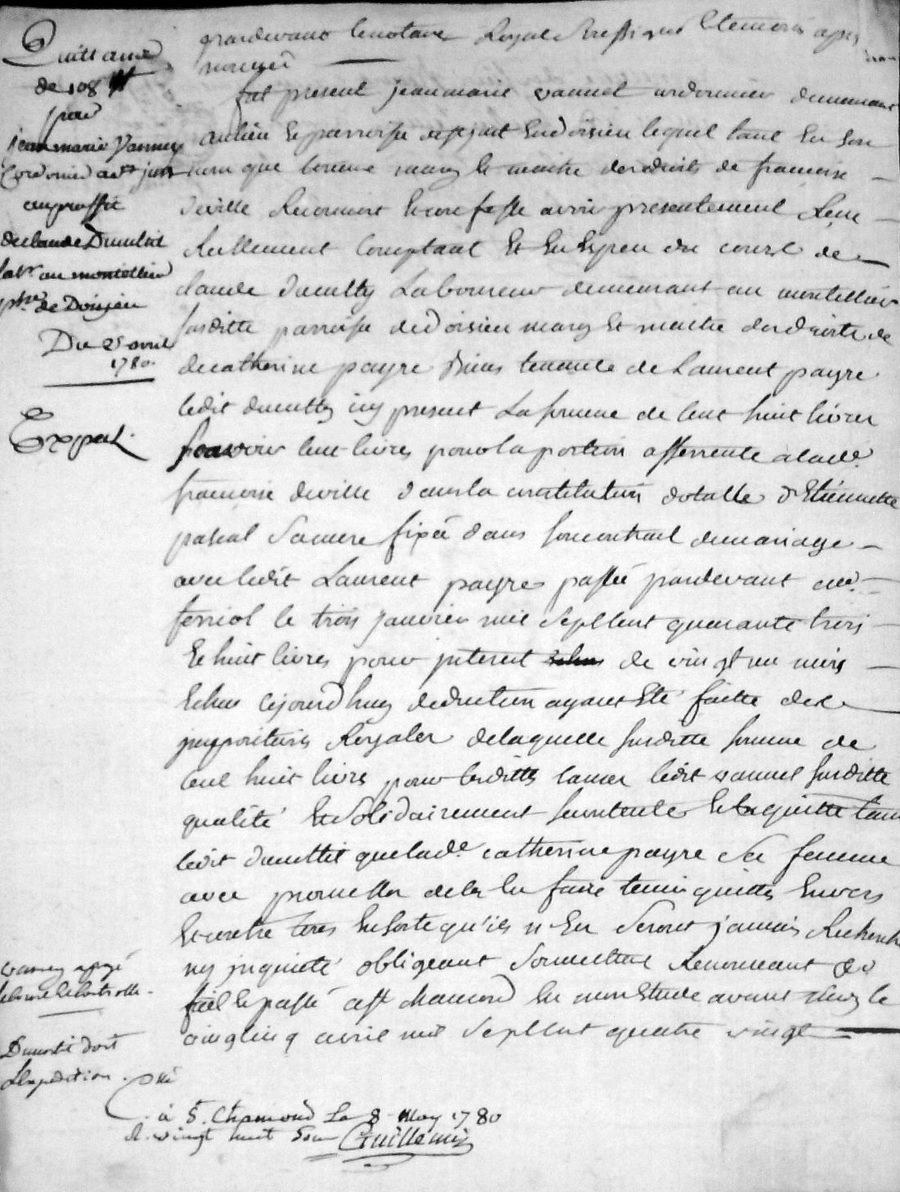 Quittance
de 108 tt
par
jean marie Vannel
Cordonier a St just
au proffit
de claude Dumbit
lab.r au montellier
p.sse de Doisieu
Du 25 avril
1780.
Exped.
pardevant le notaire Royal soussigné et temoins apres
nommés
fut present jean marie vannel cordonnier demeurant
au lieu et parroisse de st just en doisieu lequel tant en son
nom que comme mary et maitre des droits de francoise
deville Reconnoit et confesse avoir presentement Receu
Reellement Comptant et en espece du cours de
claude Laboureur demeurant au montellier
susditte parroisse de doisieu mary et maitre des droits de
de catherine payre tenante de Laurent payre
ledit icy present La somme de cent huit livres
scavoir cent livres pour la portion afferente a lad.e
francoise deville dans la constitution dotalle d'Etiennette
pascal sa mere fixée dans son contrat de mariage
avec ledit Laurent payre passé pardevant me.
ferriol le trois janvier mil sept cent quarante trois
et huit livres pour interest de vingt un mois
echus cejourd'huy deduction ayant eté faitte des
impositions Royales de laquelle susditte somme de
cent huit livres pour lesdittes causes ledit vannel susditte
qualité et solidairement se contente et en quitte tant
ledit que lad.e catherine payre sa femme
avec promesse de les en faire tenir quittes envers
et contre tous en sorte qu'ils n'en seront jamais Recherchés
ny inquieté obligeant soumettant Renonceant &a
fait et passé a st chamond en mon etude avant midy le
vingt cinq avril mil sept cent quatre vingt
vannel a payé
le
doit
L'expedition.
à St. Chamond Le 8 May 1780
R. vingt huit sous Guillemin